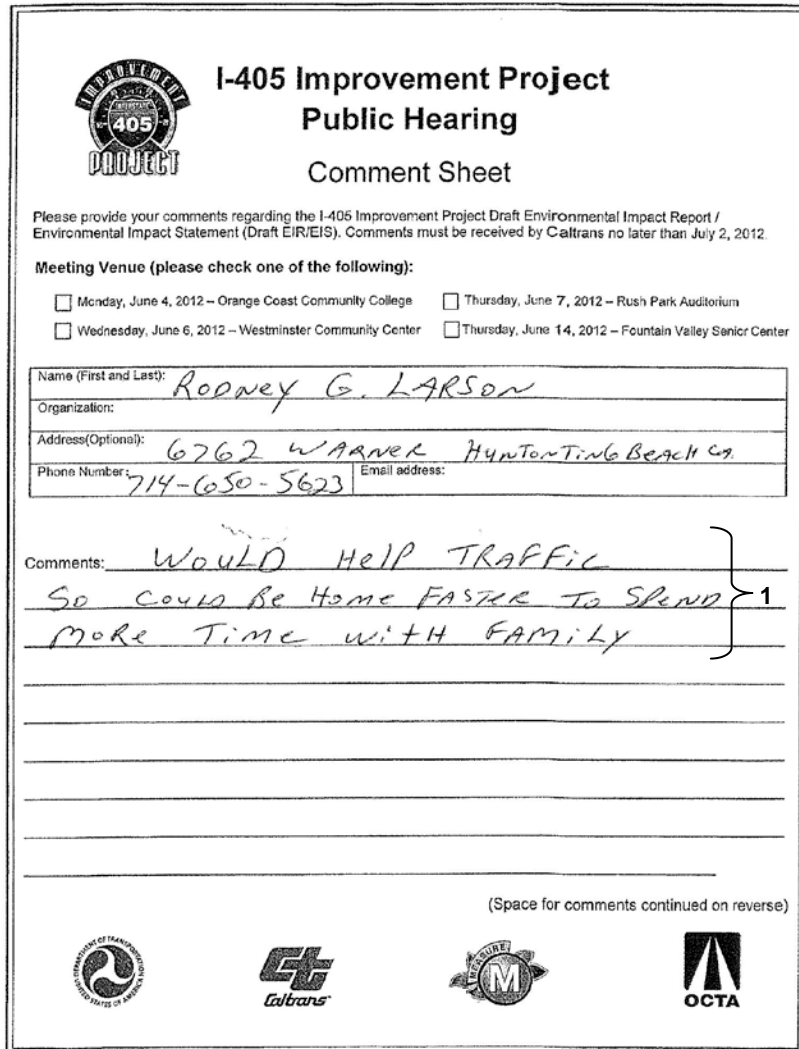 IMPROVEMENT
INTERSTATE
405
PROJECT
I-405 Improvement Project
Public Hearing
Comment Sheet
Please provide your comments regarding the I-405 Improvement Project Draft Environmental Impact Report /
Environmental Impact Statement (Draft EIR/EIS). Comments must be received by Caltrans no later than July 2, 2012.
Meeting Venue (please check one of the following):
Monday, June 4, 2012 – Orange Coast Community College
Thursday, June 7, 2012 – Rush Park Auditorium
Wednesday, June 6, 2012 – Westminster Community Center
Thursday, June 14, 2012 – Fountain Valley Senior Center
Name (First and Last): RODNEY G. LARSON
Organization:
Address(Optional): 6762 WARNER HUNTONTING BEACH CA.
Phone Number: 714-650-5623 Email address:
Comments: WOULD HElP TRAFFiC
SO COULD BE HOME FASTER TO SPEND
MORE TiME WiTH FAMiLY
1
(Space for comments continued on reverse)
DEPARTMENT OF TRANSPORTATION
UNITED STATES OF AMERICA
Caltrans
MEASURE
M
OCTA